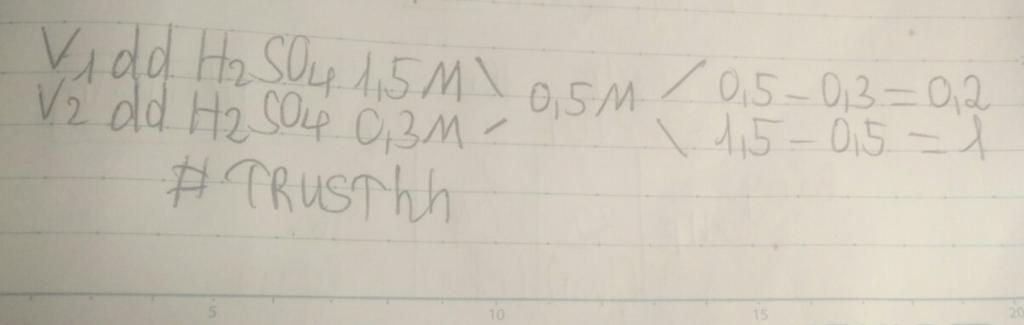 V1 dd H2SO4 1,5M \ 0,5M / 0,5 - 0,3 = 0,2
V2 dd H2SO4 0,3M / \ 1,5 - 0,5 = 1
# TRUSThh
5 10 15 20